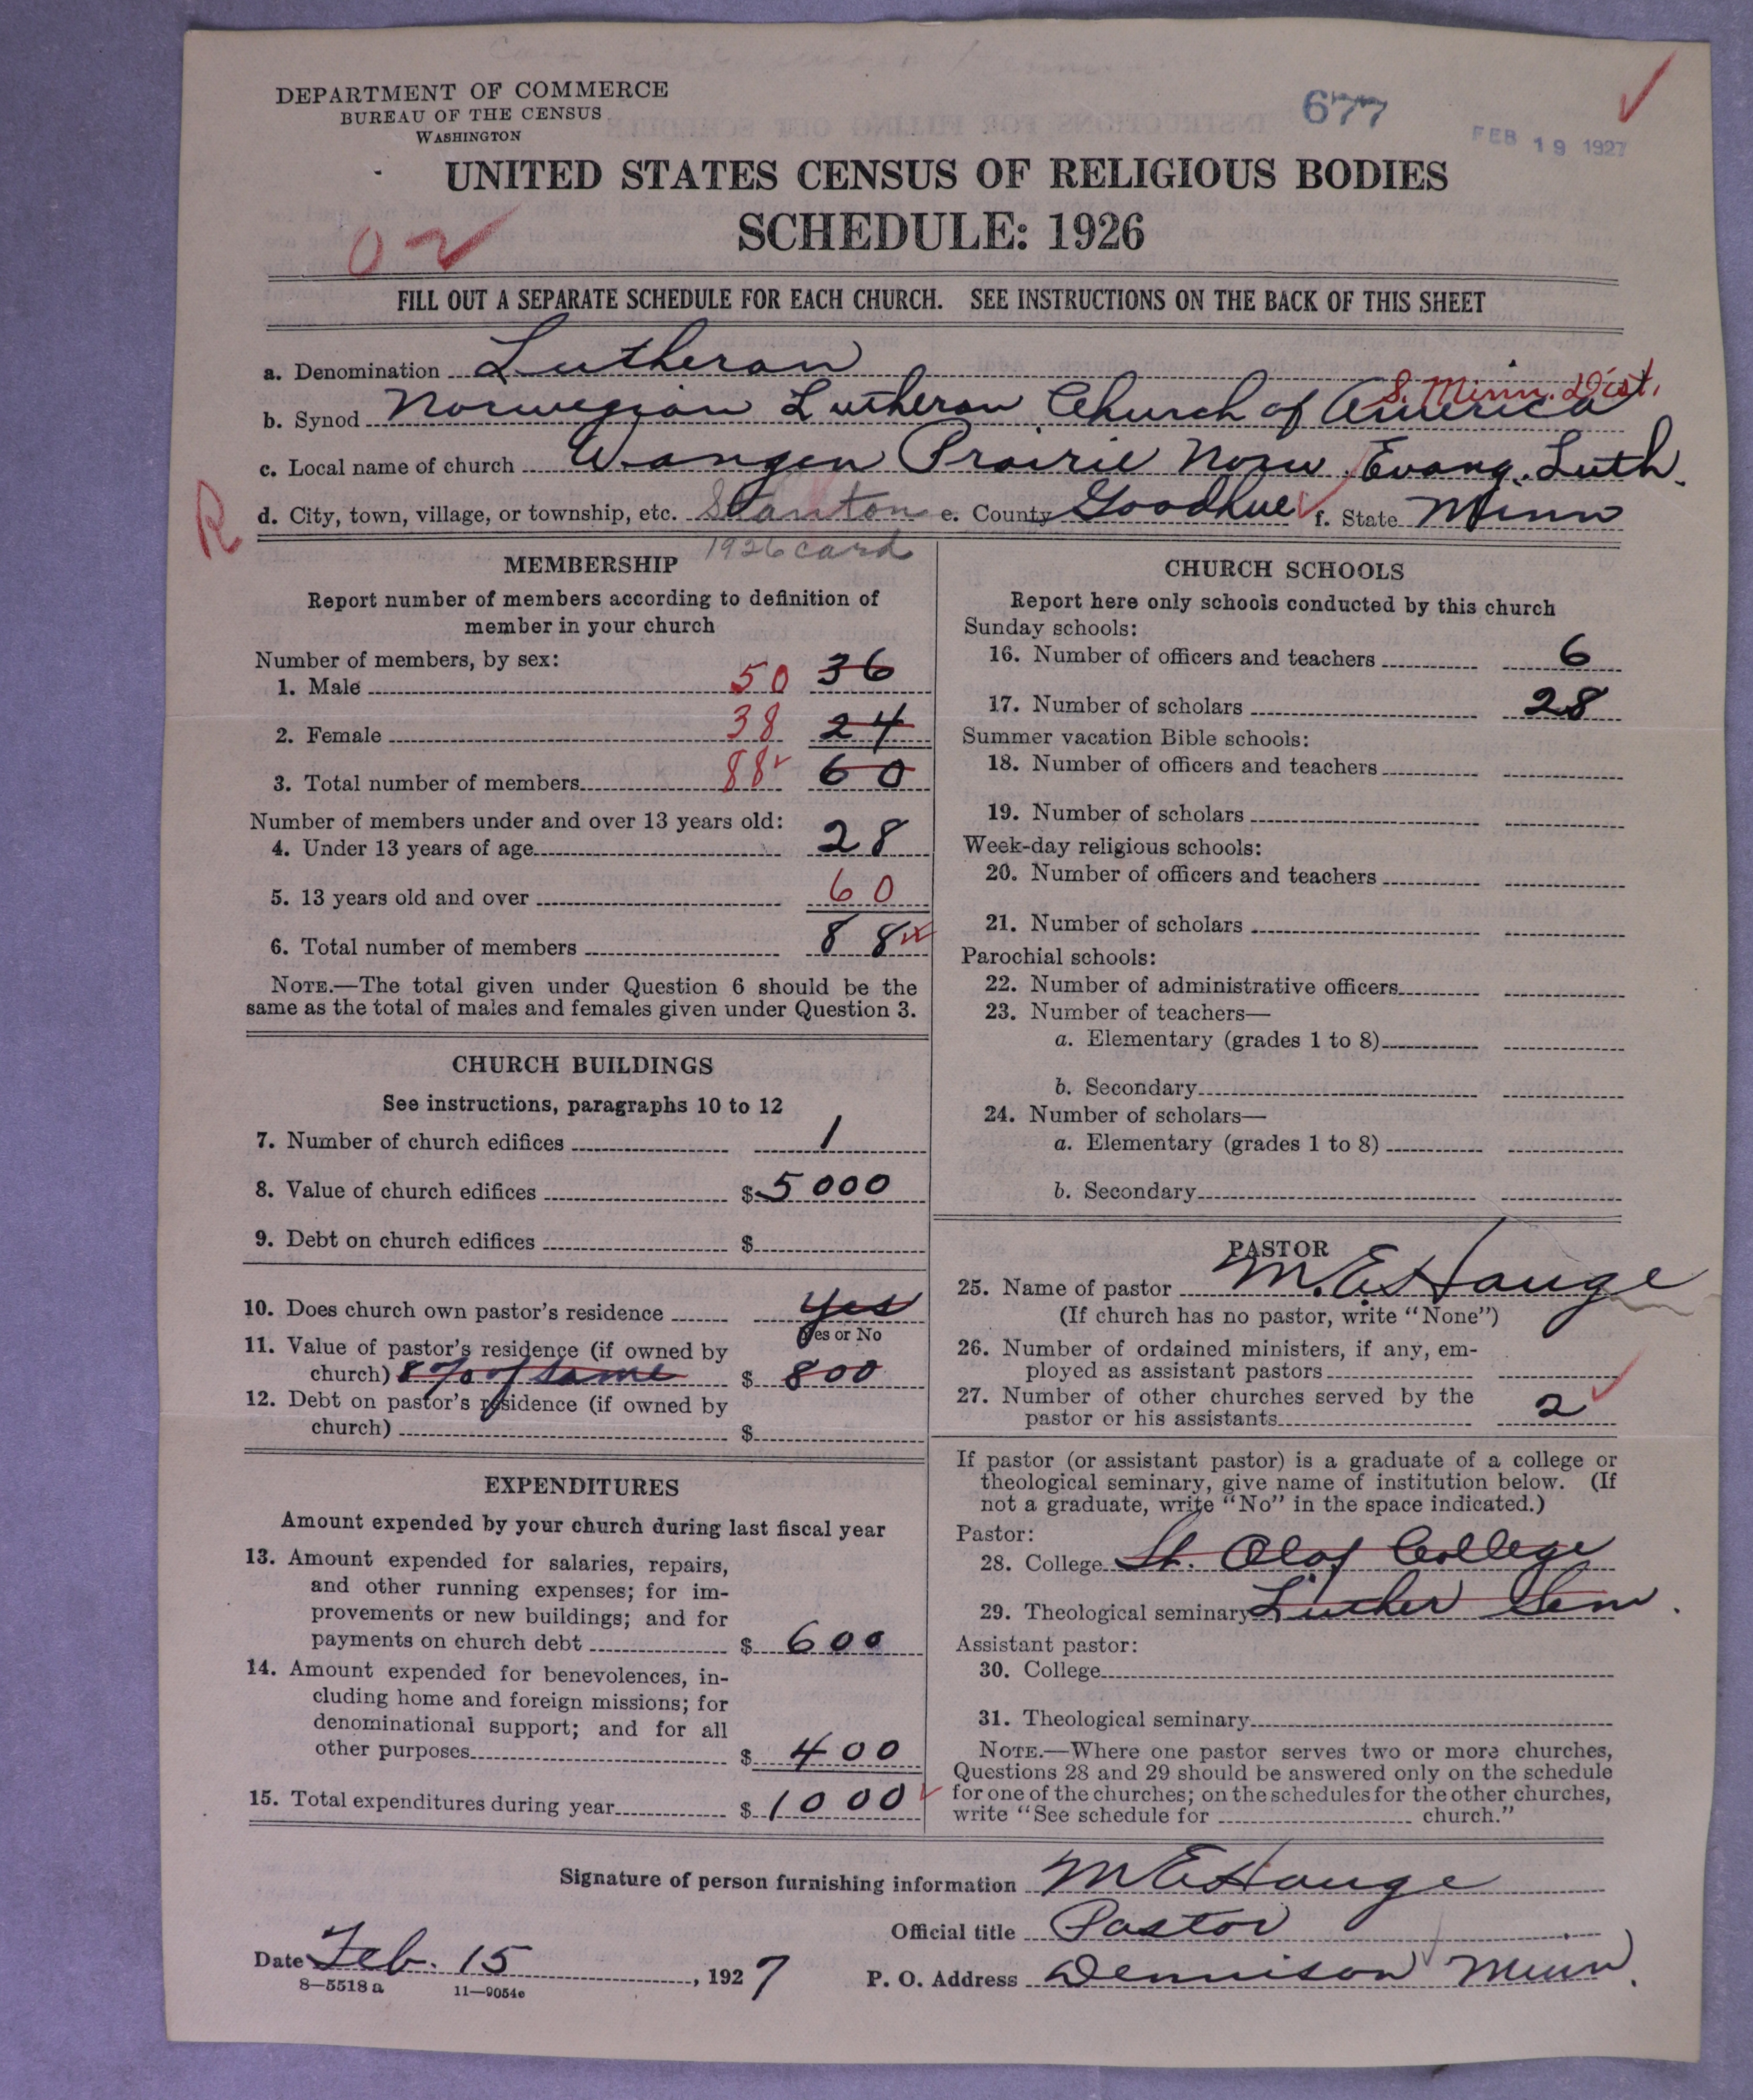 DEPARTMENT OF COMMERCE
BUREAU OF THE CENSUS
WASHINGTON
677
FEB 19 1927
UNITED STATES CENSUS OF RELIGIOUS BODIES
SCHEDULE: 1926
02
FILL OUT A SEPARATE SCHEDULE FOR EACH CHURCH. SEE INSTRUCTIONS ON THE BACK OF THIS SHEET
a. Denomination Lutheran
S. Minn. Dist.
b. Synod Norwegian Lutheran Church of America
c. Local name of church Wangen Prairie Norw. Evang. Luth.
R d. City, town, village, or township, etc. Stanton e. County Goodhue f. State Minn
1926 card
MEMBERSHIP
Report number of members according to definition of
member in your church
Number of members, by sex:
1. Male 50 36
2. Female 38 24
3. Total number of members 88 60
Number of members under and over 13 years old:
4. Under 13 years of age 28
5. 13 years old and over 60
6. Total number of members 88
NOTE.—The total given under Question 6 should be the
same as the total of males and females given under Question 3.
CHURCH BUILDINGS
See instructions, paragraphs 10 to 12
7. Number of church edifices 1
8. Value of church edifices $ 5000
9. Debt on church edifices $
10. Does church own pastor's residence yes
Yes or No
11. Value of pastor's residence (if owned by
church) 8% of same $ 800
12. Debt on pastor's residence (if owned by
church) $
EXPENDITURES
Amount expended by your church during last fiscal year
13. Amount expended for salaries, repairs,
and other running expenses; for im-
provements or new buildings; and for
payments on church debt $ 600
14. Amount expended for benevolences, in-
cluding home and foreign missions; for
denominational support; and for all
other purposes $ 400
15. Total expenditures during year $ 1000
CHURCH SCHOOLS
Report here only schools conducted by this church
Sunday schools:
16. Number of officers and teachers 6
17. Number of scholars 28
Summer vacation Bible schools:
18. Number of officers and teachers
19. Number of scholars
Week-day religious schools:
20. Number of officers and teachers
21. Number of scholars
Parochial schools:
22. Number of administrative officers
23. Number of teachers—
a. Elementary (grades 1 to 8)
b. Secondary
24. Number of scholars—
a. Elementary (grades 1 to 8)
b. Secondary
PASTOR
25. Name of pastor M. E. Hauge
(If church has no pastor, write "None")
26. Number of ordained ministers, if any, em-
ployed as assistant pastors
27. Number of other churches served by the
pastor or his assistants 2
If pastor (or assistant pastor) is a graduate of a college or
theological seminary, give name of institution below. (If
not a graduate, write "No" in the space indicated.)
Pastor:
28. College St. Olaf College
29. Theological seminary Luther Sem.
Assistant pastor:
30. College
31. Theological seminary
NOTE.—Where one pastor serves two or more churches,
Questions 28 and 29 should be answered only on the schedule
for one of the churches; on the schedules for the other churches,
write "See schedule for church."
Signature of person furnishing information M E Hauge
Official title Pastor
Date Feb. 15, 1927 P. O. Address Dennison Minn.
8—5518 a 11—9054e